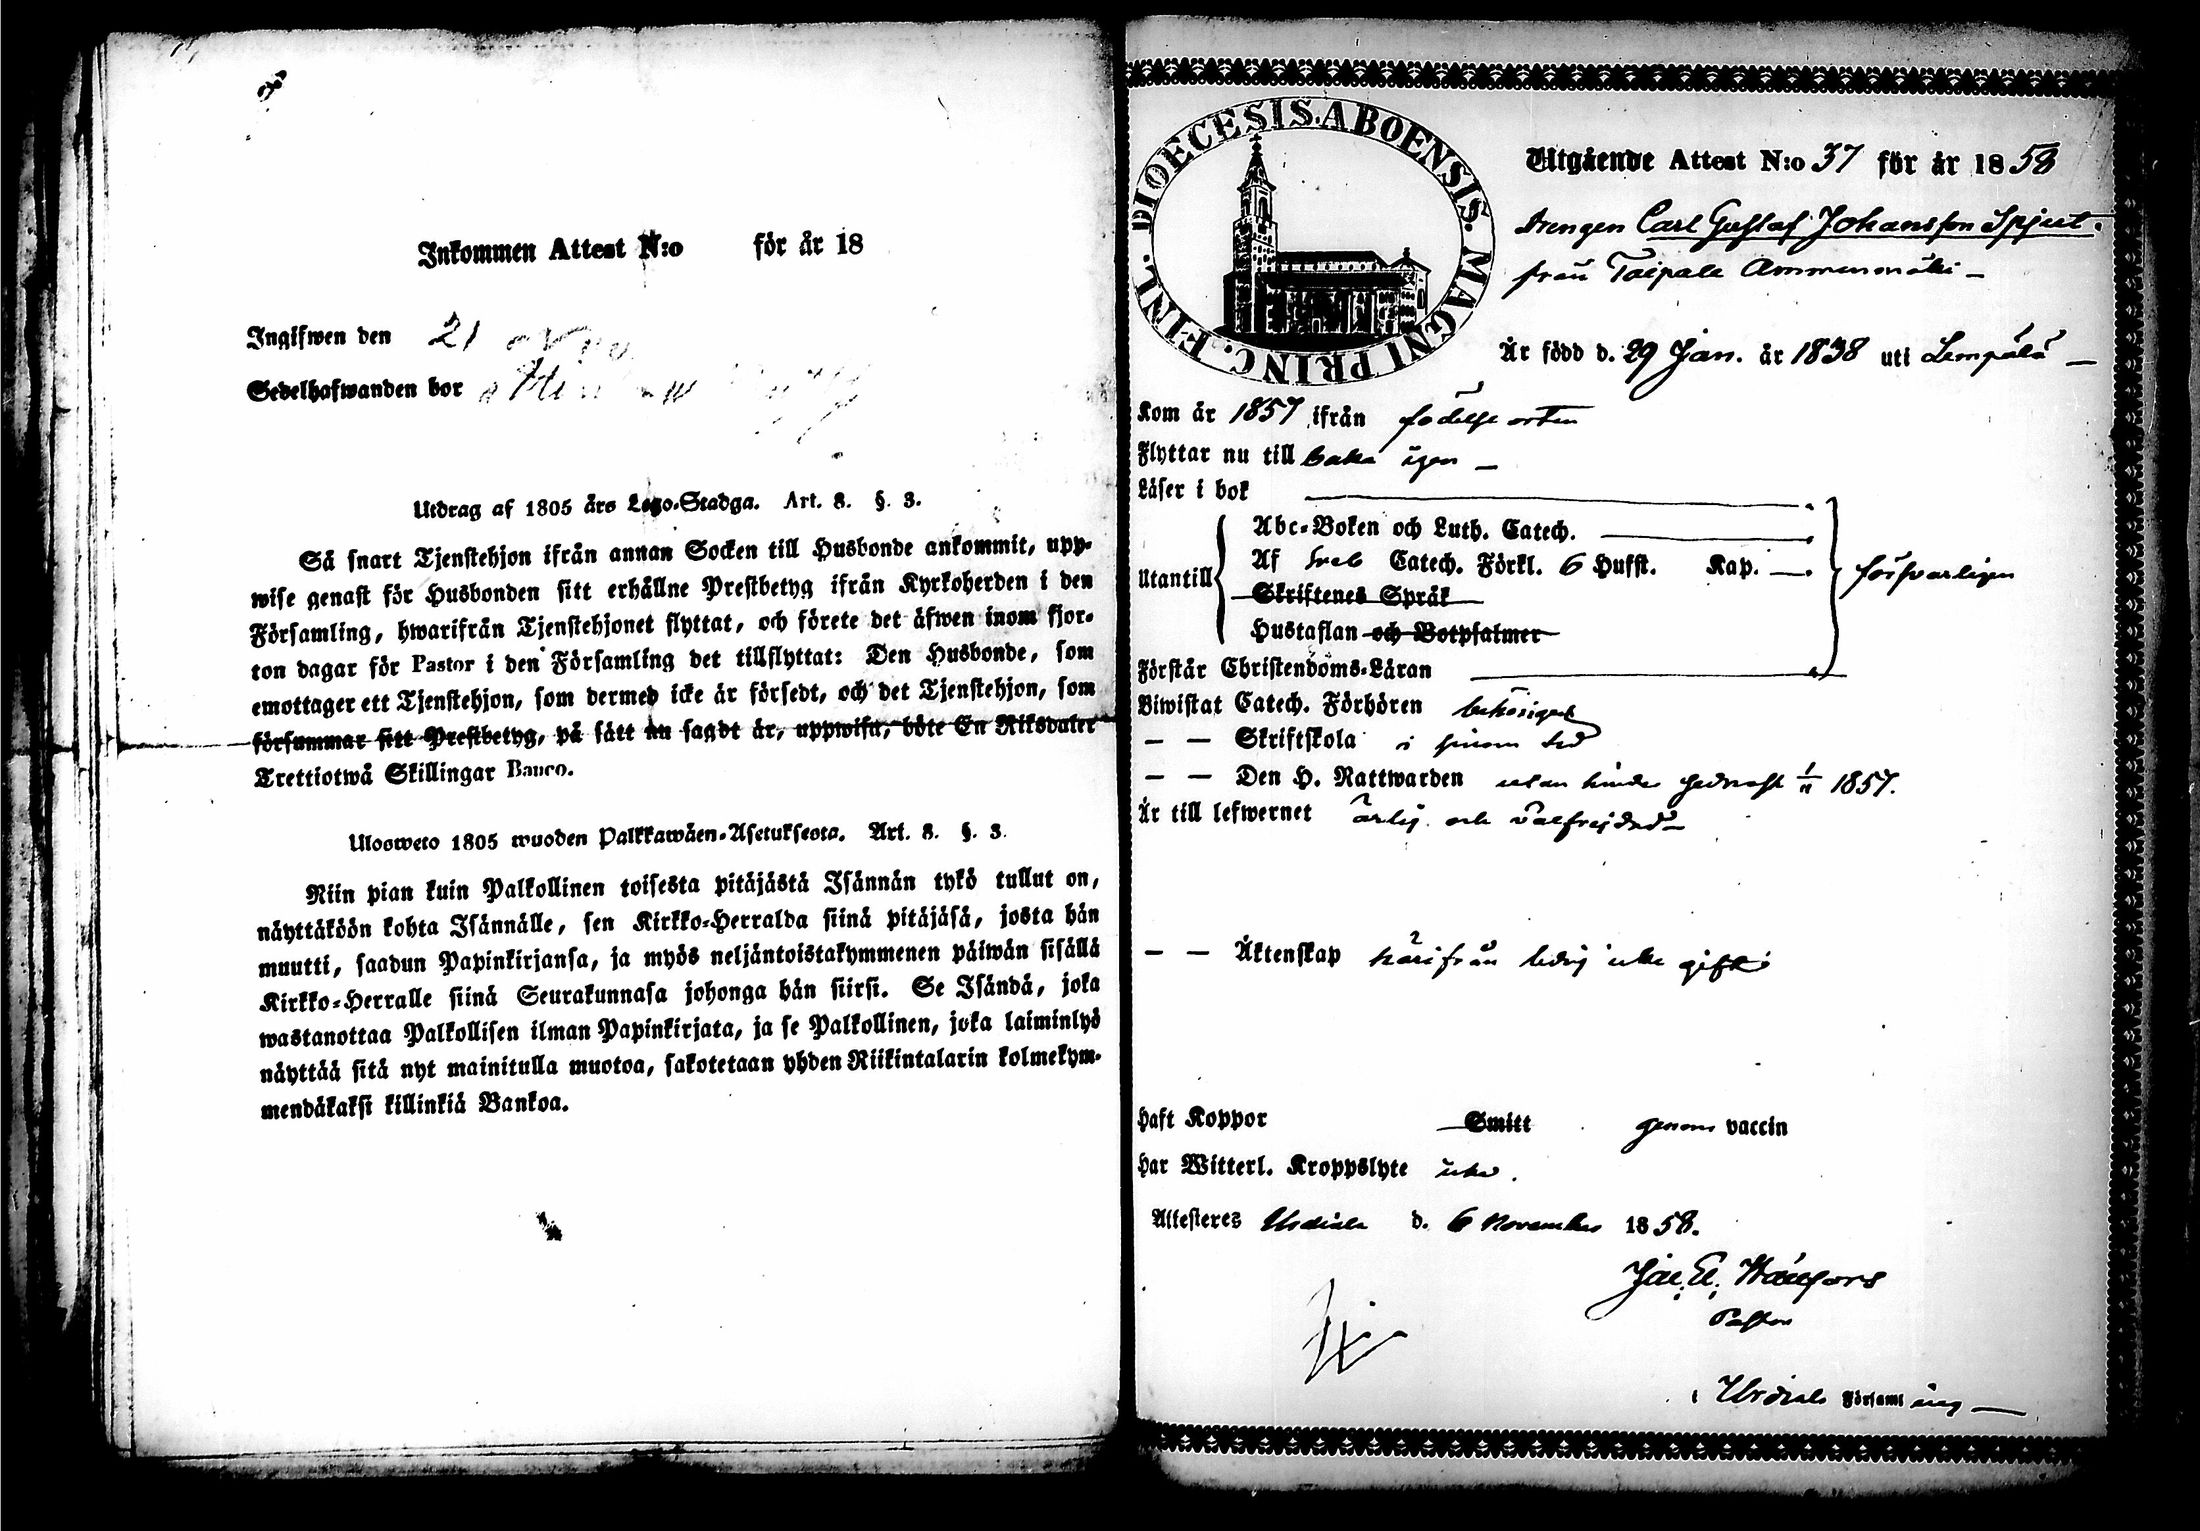 Inkommen Attest N:o för år 18
Ingifwen den 21
Sedelhafwanden bor
Utdrag af 1805 års Lego-Stadga. Art. 8. §. 3.
Så snart Tjenstehjon ifrån annan Socken till Husbonde ankommit, upp-
wise genast för Husbonden sitt erhållne Prestbetyg ifrån Kyrkoherden i den
Församling, hwarifrån Tjenstehjonet flyttat, och förete det äfwen inom fjor-
ton dagar för Pastor i den Församling det tillflyttat: Den Husbonde, som
emottager ett Tjenstehjon, som dermed icke är försedt, och det Tjenstehjon, som
försummar sitt Prestbetyg, på sätt nu sagdt är, uppwisa, böte En Riksdaler
Trettiotwå Skillingar Banco.
Ulosweto 1805 wuoden Palkkawäen-Asetuksesta. Art. 8. §. 3.
Niin pian kuin Palkollinen toisesta pitäjästä Isännän tykö tullut on,
näyttäköön kohta Isännälle, sen Kirkko-Herralda siinä pitäjäsä, josta hän
muutti, saadun Papinkirjansa, ja myös neljäntoistakymmenen päiwän sisällä
Kirkko-Herralle siinä Seurakunnasa johonga hän siirsi. Se Isändä, joka
wastanottaa Palkollisen ilman Papinkirjata, ja se Palkollinen, joka laiminlyö
näyttää sitä nyt mainitulla muotoa, sakotetaan yhden Riikintalarin kolmekym-
mendäkaksi killinkiä Bankoa.
DIOECESIS. ABOENSIS. MAGNI PRINC. FINL.
Utgående Attest N:o 37 för år 1858
Drengen Carl Gustaf Johansson Spjut.
från Taipale Ammenmäki –
Är född d. 29 Jan. år 1838 uti Lempälä –
Kom år 1857 ifrån födelse orten
Flyttar nu till baka igen –
Läser i bok
Abc-Boken och Luth. Catech.
Utantill Af Sveb Catech. Förkl. 6 Hufst. Kap. —. försvarligen
Skriftenes Språk
Hustaflan och Botpsalmer
Förstår Christendoms-Läran
Biwistat Catech. Förhören behörigen
— — Skriftskola i sinom tid
— — Den H. Nattwarden utan hinder sednast 1/11 1857.
Är till lefwernet ärlig och välfrejdad –
— — Äktenskap härifrån ledig icke gift
Haft Koppor Smitt genom vaccin
Har Witterl. Kroppslyte icke.
Attesteres Urdiala d. 6 November 1858.
Pastor
i Urdiala Församling —